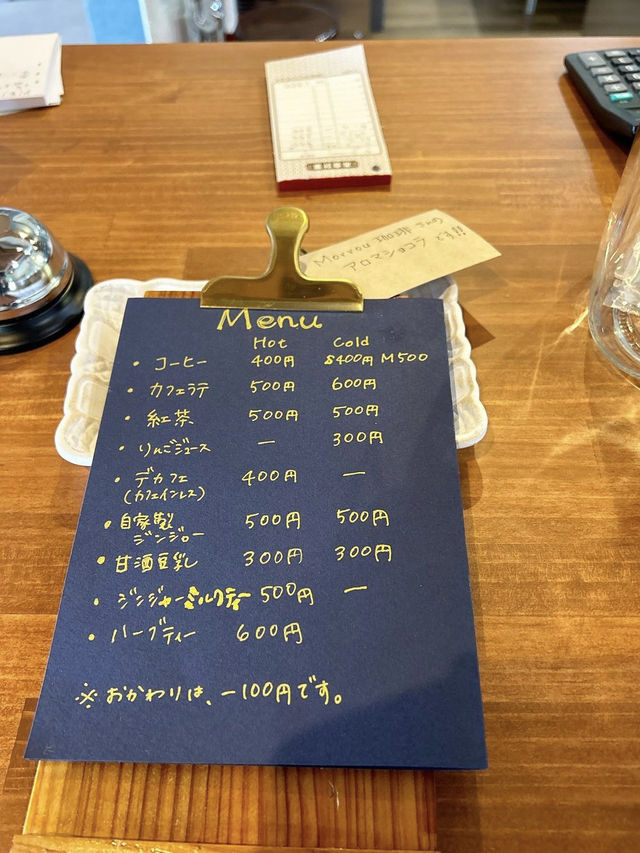 Morrow 珈琲 さんの
アロマショコラ です!!
Menu
Hot Cold
・コーヒー 400円 S400円 M500
・カフェラテ 500円 600円
・紅茶 500円 500円
・りんごジュース ー 300円
・デカフェ 400円 ー
(カフェインレス)
・自家製 500円 500円
ジンジャー
・甘酒豆乳 300円 300円
・ジンジャーミルクティー 500円 ー
・ハーブティー 600円
※おかわりは、-100円です。